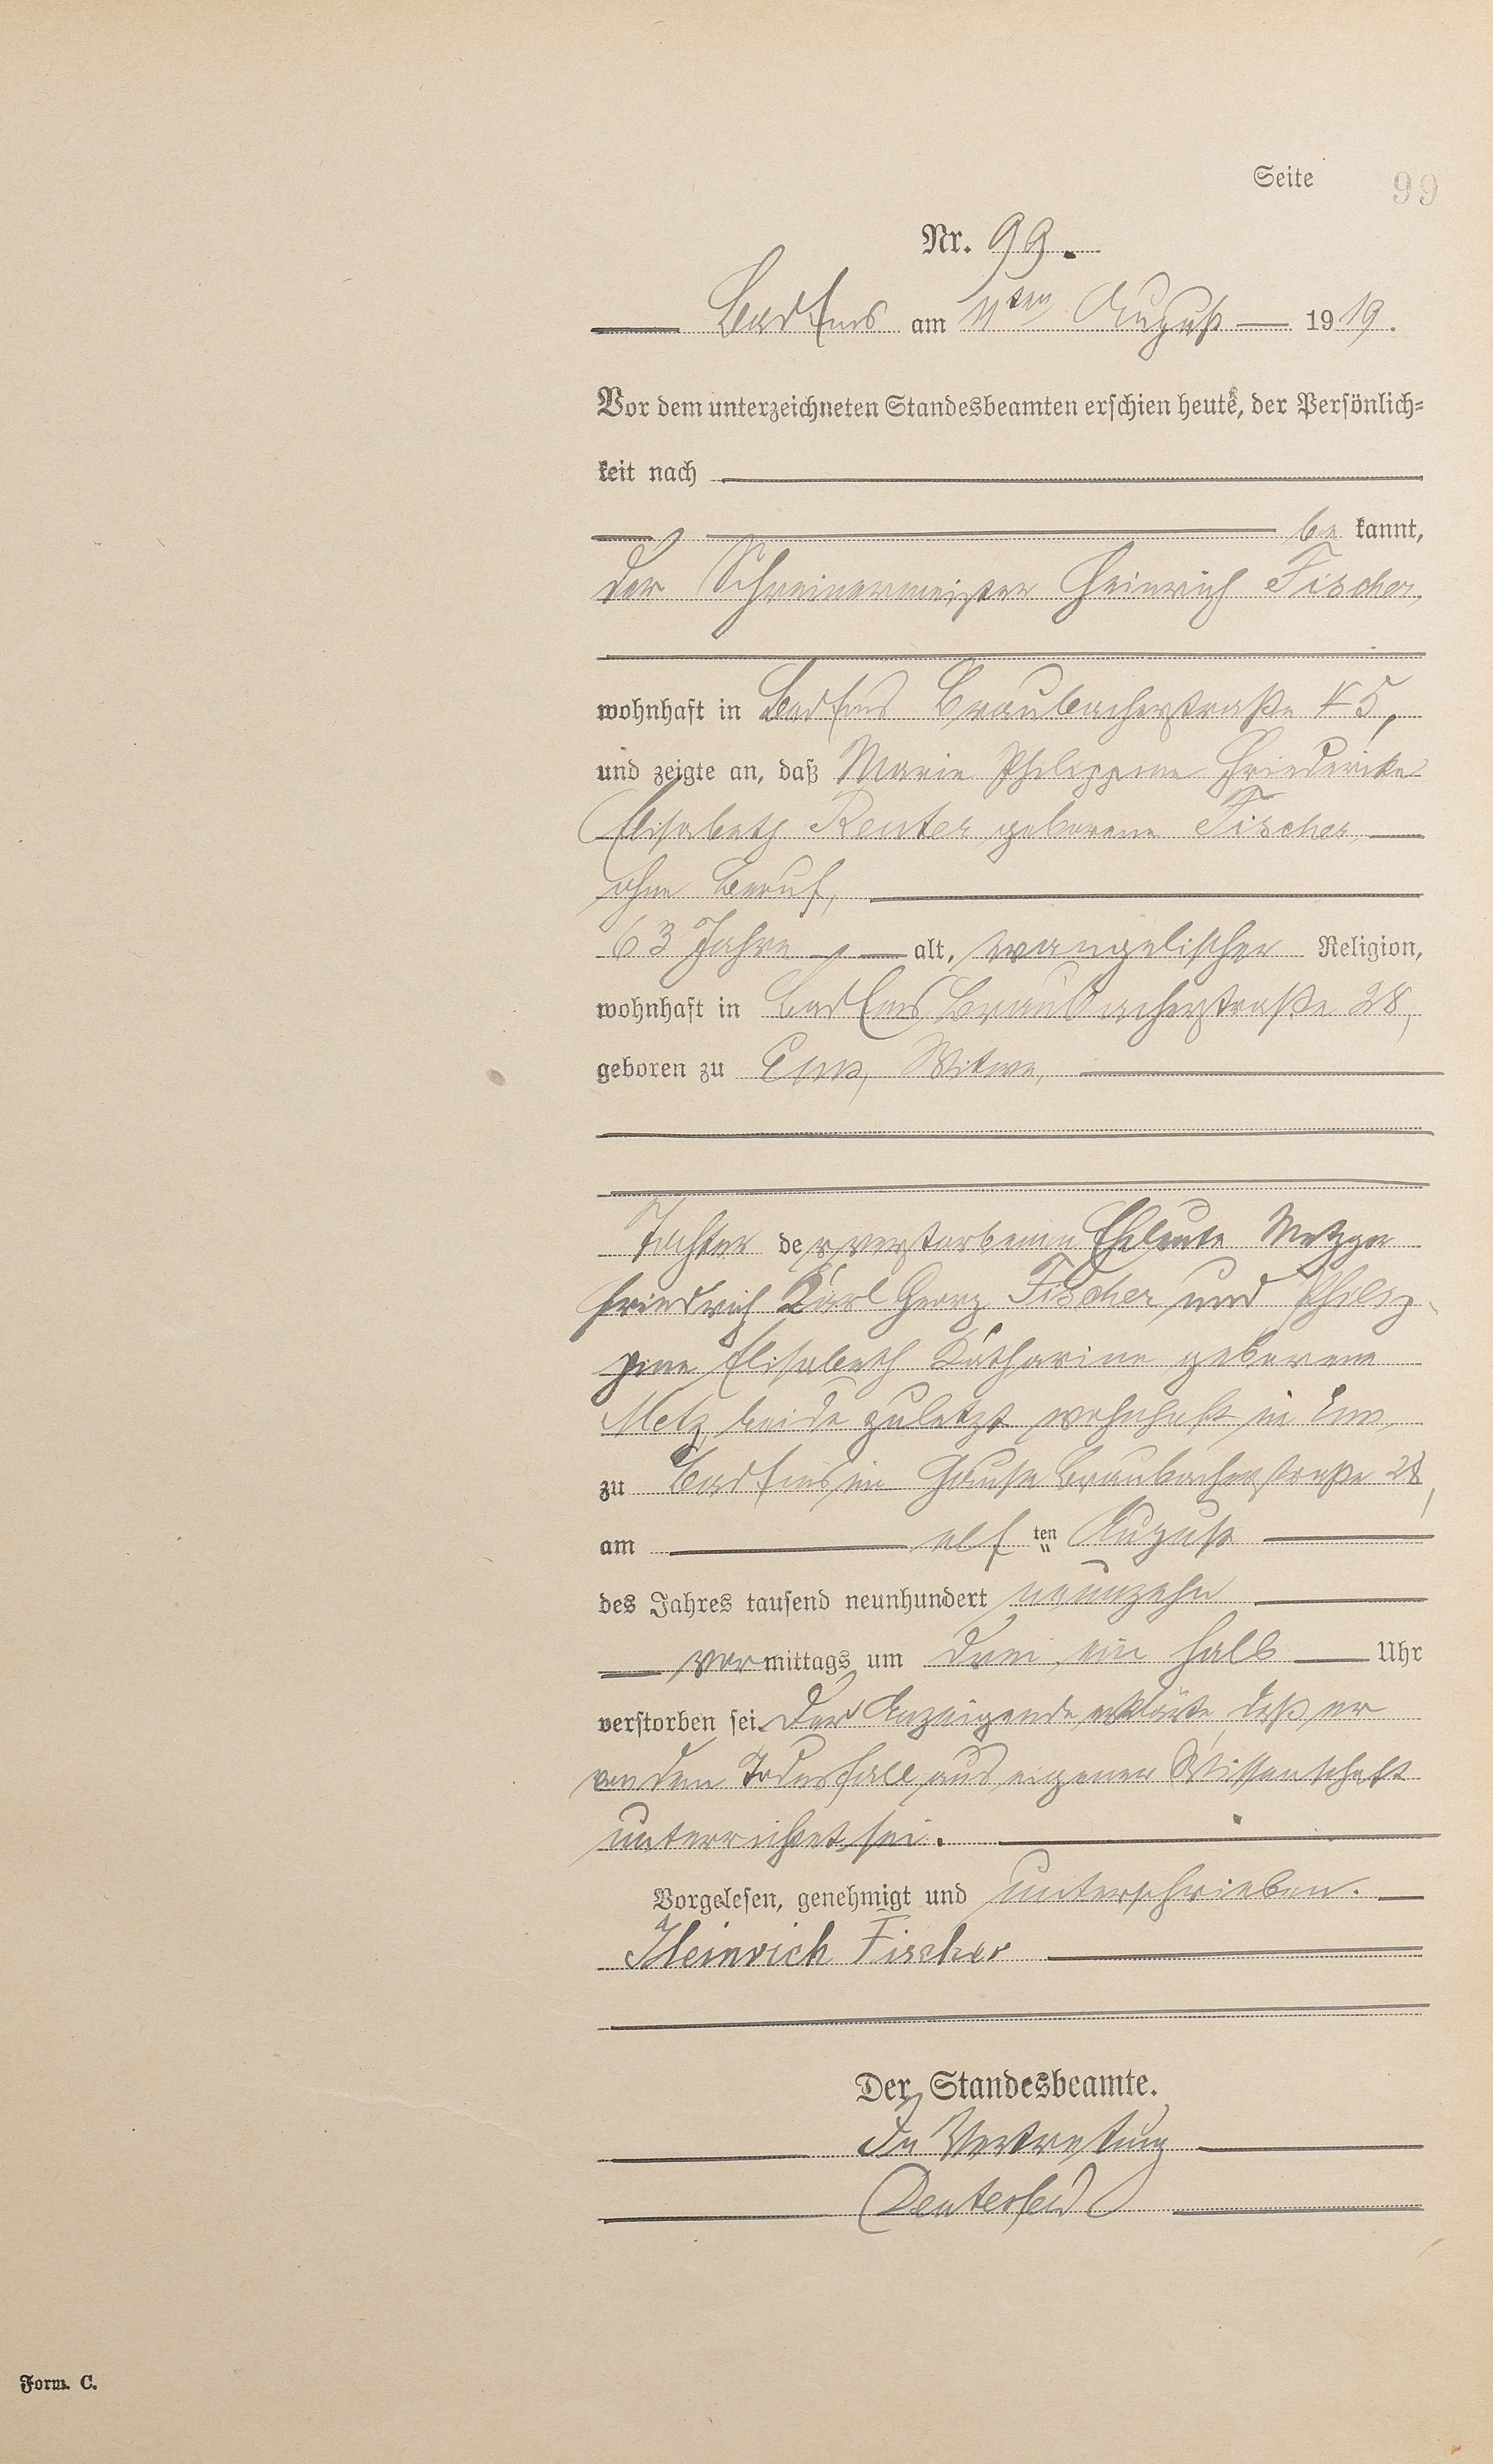 Seite 99
Nr. 99.
Bad Ems am 11ten August 1919.
Vor dem unterzeichneten Standesbeamten erschien heute, der Persönlich-
keit nach
be kannt,
der Schreinermeister Heinrich Fischer,
wohnhaft in Bad Ems Braubacherstraße 45,
und zeigte an, daß Marie Philippine Friederike
Elisabeth Reuter geborene Fischer,
ohne Beruf,
63 Jahre alt, evangelischer Religion,
wohnhaft in Bad Ems Braubacherstraße 28,
geboren zu Ems, Witwe,
Tochter der verstorbenen Eheleute Metzger
Friedrich Karl Georg Fischer und Philip-
pine Elisabeth Katharine geborene
Metz, beide zuletzt wohnhaft in Ems,
zu Bad Ems im Hause Braubacherstraße 28,
am elf ten August
des Jahres tausend neunhundert neunzehn
vormittags um drei ein halb Uhr
verstorben sei. Der Anzeigende erklärte, daß er
von dem Todesfall aus eigener Wissenschaft
unterrichtet sei.
Vorgelesen, genehmigt und unterschrieben.
Heinrich Fischer
Der Standesbeamte.
In Vertretung
Form. C.